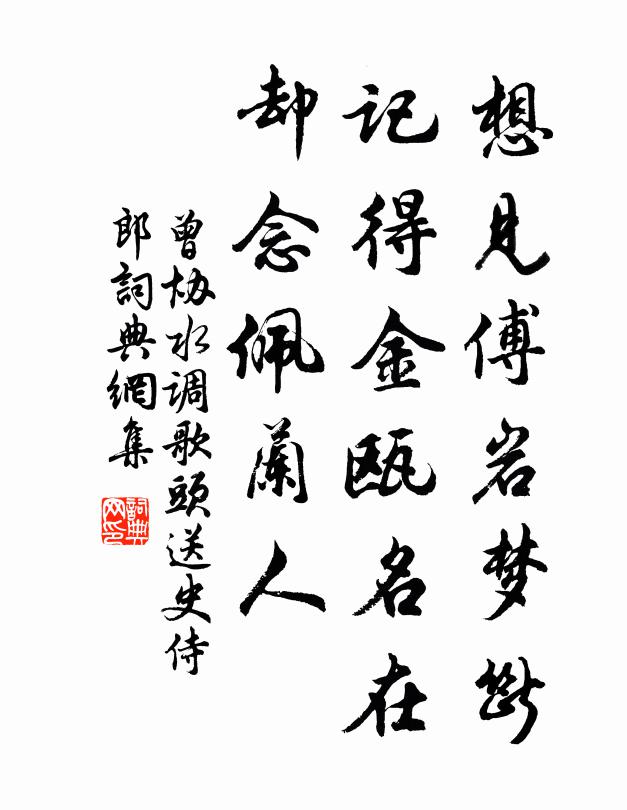 想見傅岩梦斷
記得金瓯名在
却念佩蘭人
曾协水调歌頭送史侍
郎詞典網集
詞典网印